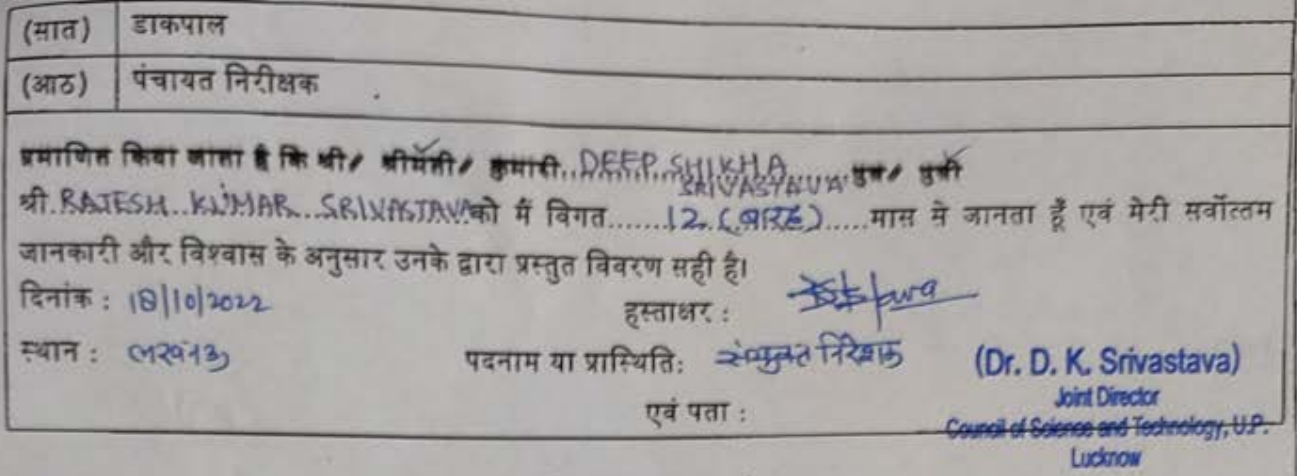 (सात) डाकपाल
(आठ) पंचायत निरीक्षक
प्रमाणित किया जाता है कि श्री/ श्रीमती/ कुमारी..DEEP SHIKHA SRIVASTAVA पुत्र/ पुत्री
श्री.RAJESH..KUMAR...SRIVASTAVAको मैं विगत.......12.(बारह).....मास से जानता हूँ एवं मेरी सर्वोत्तम
जानकारी और विश्वास के अनुसार उनके द्वारा प्रस्तुत विवरण सही है।
दिनांक : 18/10/2022 हस्ताक्षर :
स्थान : लखनऊ पदनाम या प्रास्थिति: संयुक्त निदेशक (Dr. D. K. Srivastava)
Joint Director
एवं पता : Council of Science and Technology, U.P.
Lucknow